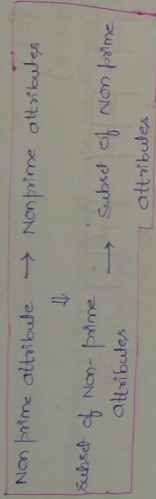 Non prime attribute → Nonprime attributes
⇓
Subset of Non-prime attributes → Subset of Non prime attributes